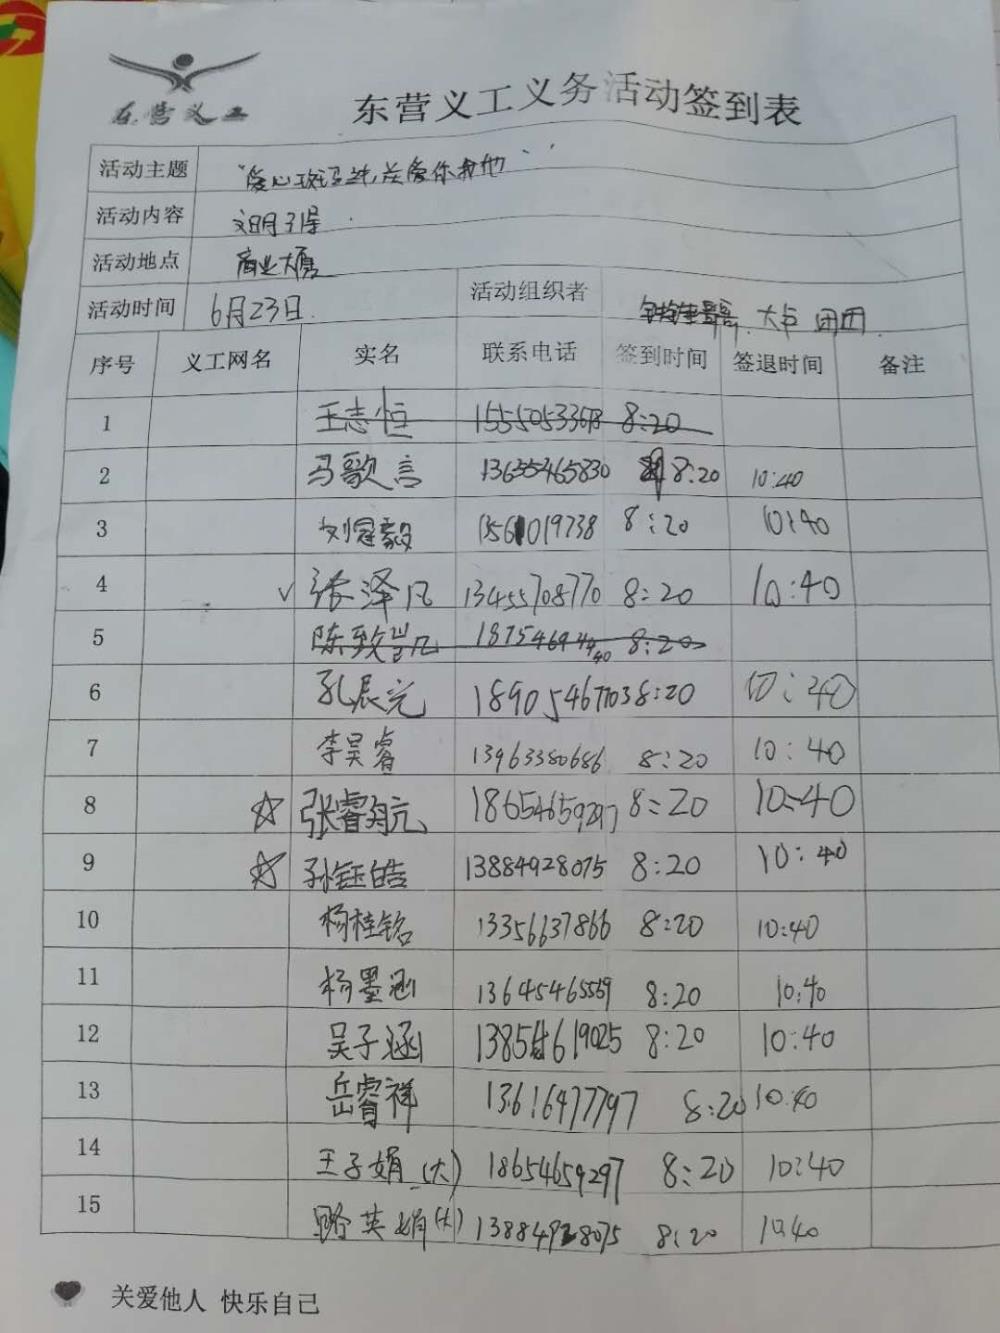 东营义工
东营义工义务活动签到表
活动主题 "爱心斑马线,关爱你我他"
活动内容 文明引导
活动地点 商业大厦
活动时间 6月23日 活动组织者 大卢 团团
序号 义工网名 实名 联系电话 签到时间 签退时间 备注
1 王志恒 8:20
2 马歌言 13655465830 8:20 10:40
3 刘冠毅 13561019738 8:20 10:40
4 √ 张泽凡 13455708770 8:20 10:40
5 陈致凯 8:20
6 孔辰元 18905467703 8:20 10:40
7 李昊睿 13963380686 8:20 10:40
8 ☆ 张睿航 18654659297 8:20 10:40
9 ☆ 孙钰皓 13884928075 8:20 10:40
10 杨桂铭 13356637866 8:20 10:40
11 杨墨涵 13645465569 8:20 10:40
12 吴子涵 13854619025 8:20 10:40
13 岳睿祥 13616477797 8:20 10:40
14 王子娟(大) 18654659297 8:20 10:40
15 路英娟(大) 13884928075 8:20 10:40
关爱他人 快乐自己